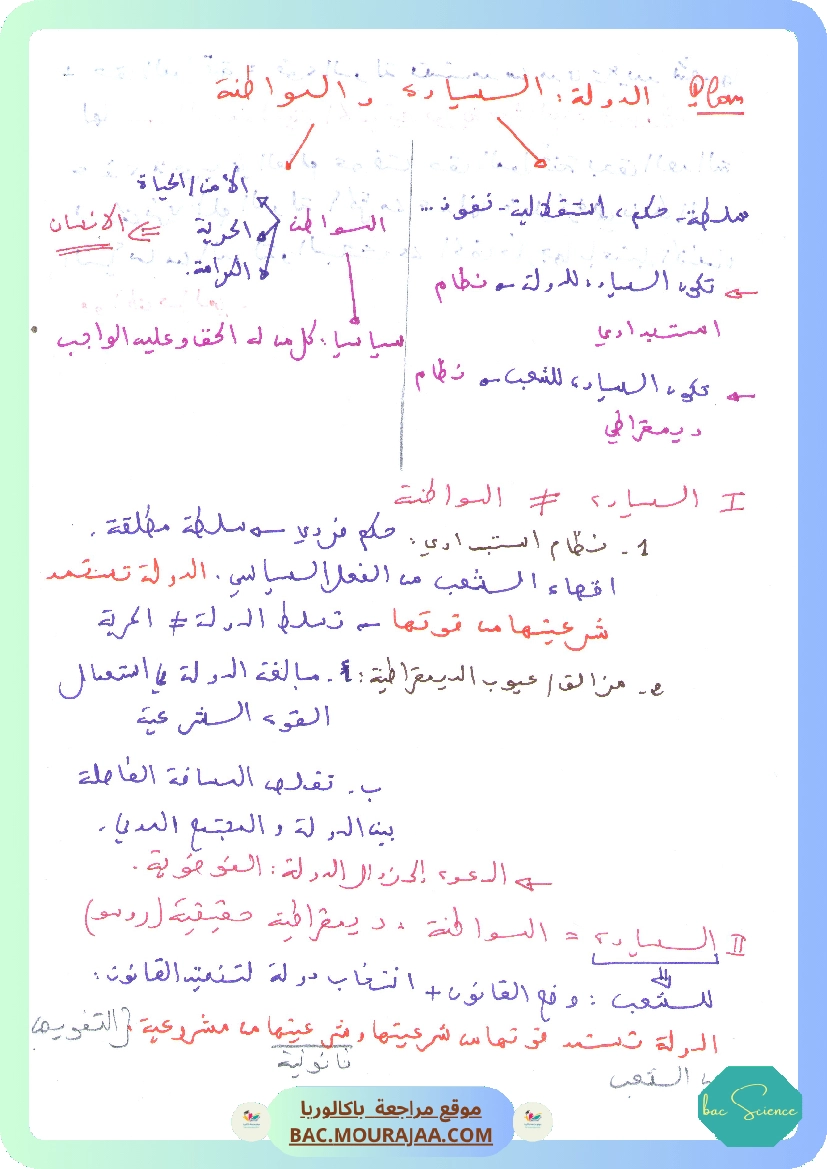 Plan الدولة: السيادة والمواطنة
سلطة - حكم، استقلالية - نفوذ...
← تكون السيادة للدولة → نظام
استبدادي
← تكون السيادة للشعب → نظام
ديمقراطي
المواطنة
الأمن/الحياة
الحرية
الكرامة
⇐ الإنسان
سياسيا: كل من له الحق وعليه الواجب
I السيادة ≠ المواطنة
1- نظام استبدادي: حكم فردي → سلطة مطلقة.
اقصاء الشعب من الفعل السياسي. الدولة تستمد
شرعيتها من قوتها → تسلط الدولة ≠ الحرية
2- مزالق/عيوب الديمقراطية: أ. مبالغة الدولة في استعمال
القوة الشرعية
ب. تقلص المسافة الفاصلة
بين الدولة والمجتمع المدني.
← الدعوة إلى زوال الدولة: الفوضوية.
II السيادة = المواطنة: ديمقراطية حقيقية (روسو)
للشعب: وضع القانون + انتخاب دولة لتنفيذ القانون:
الدولة تستمد قوتها من شرعيتها وشرعيتها من مشروعية {التفويض
قانونية
من الشعب
bac Science
موقع مراجعة باكالوريا
BAC.MOURAJAA.COM